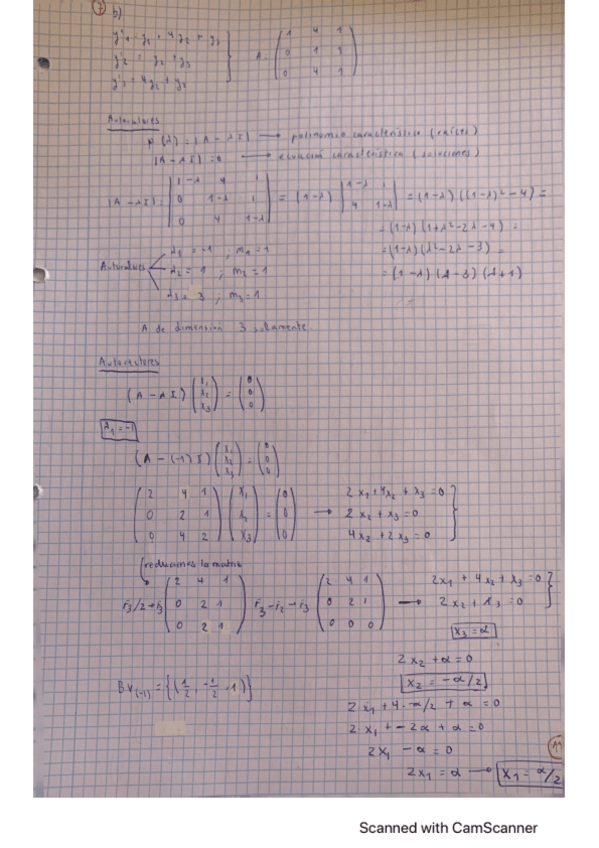 7 b)
y'1 = y1 + 4y2 + y3
y'2 = y2 + y3
y'3 = 4y2 + y3
A = ( 1 4 1 / 0 1 1 / 0 4 1 )
Autovalores
P(λ) = |A - λI| → polinomio característico (raíces)
|A - λI| = 0 → ecuación característica (soluciones)
|A - λI| = | 1-λ 4 1 / 0 1-λ 1 / 0 4 1-λ | = (1-λ) | 1-λ 1 / 4 1-λ | = (1-λ) ((1-λ)² - 4) =
= (1-λ) (1+λ² - 2λ - 4) =
= (1-λ) (λ² - 2λ - 3) =
= (1-λ) (λ-3) (λ+1)
Autovalores
λ1 = -1 ; m1 = 1
λ2 = 1 ; m2 = 1
λ3 = 3 ; m3 = 1
A de dimensión 3 solamente.
Autovectores
(A - λI) ( x1 / x2 / x3 ) = ( 0 / 0 / 0 )
λ1 = -1
(A - (-1) I) ( x1 / x2 / x3 ) = ( 0 / 0 / 0 )
( 2 4 1 / 0 2 1 / 0 4 2 ) ( x1 / x2 / x3 ) = ( 0 / 0 / 0 ) →
2x1 + 4x2 + x3 = 0
2x2 + x3 = 0
4x2 + 2x3 = 0
reducimos la matriz
f3/2 → f3 ( 2 4 1 / 0 2 1 / 0 2 1 ) f3 - f2 → f3 ( 2 4 1 / 0 2 1 / 0 0 0 ) →
2x1 + 4x2 + x3 = 0
2x2 + x3 = 0
x3 = α
2x2 + α = 0
x2 = -α/2
Bv(-1) = {(1/2, -1/2, 1)}
2x1 + 4·-α/2 + α = 0
2x1 + -2α + α = 0
2x1 - α = 0
2x1 = α → x1 = α/2
11
Scanned with CamScanner